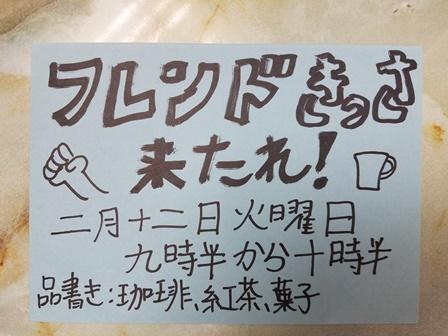 フレンドきっさ
来たれ!
二月十二日火曜日
九時半から十時半
品書き:珈琲、紅茶、菓子